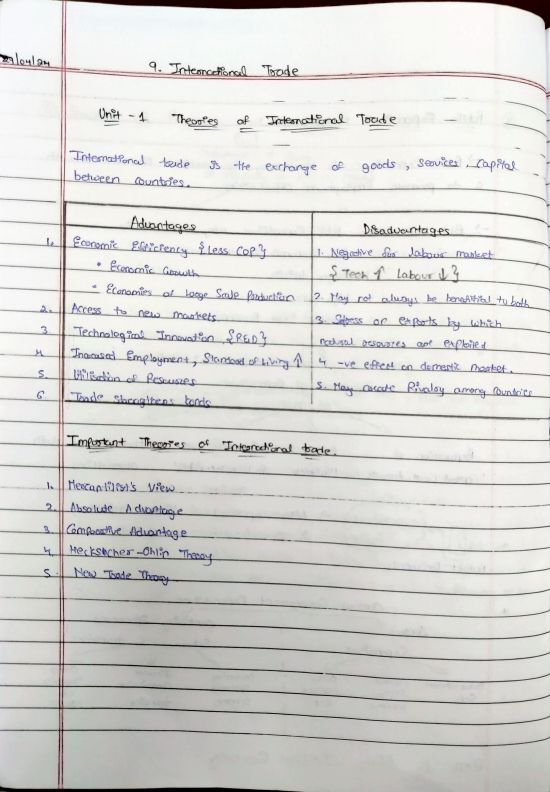 29/04/24
9. International Trade
Unit - 1 Theories of International Trade
International trade is the exchange of goods, services, capital
between countries.
Advantages
1. Economic Efficiency {Less COP}
• Economic Growth
• Economies of Large Scale Production
2. Access to new markets
3 Technological Innovation {R&D}
4 Increased Employment, Standard of Living ↑
5. Utilisation of Resources
6 Trade strengthens bonds
Disadvantages
1. Negative for labour market
{Tech ↑ Labour ↓}
2. May not always be beneficial to both
3. Stress on exports by which
natural resources are exploited
4. -ve effect on domestic market.
5. May create Rivalry among countries
Important Theories of International trade.
1. Mercantilist's View
2. Absolute Advantage
3. Comparative Advantage
4. Heckscher-Ohlin Theory
5. New Trade Theory